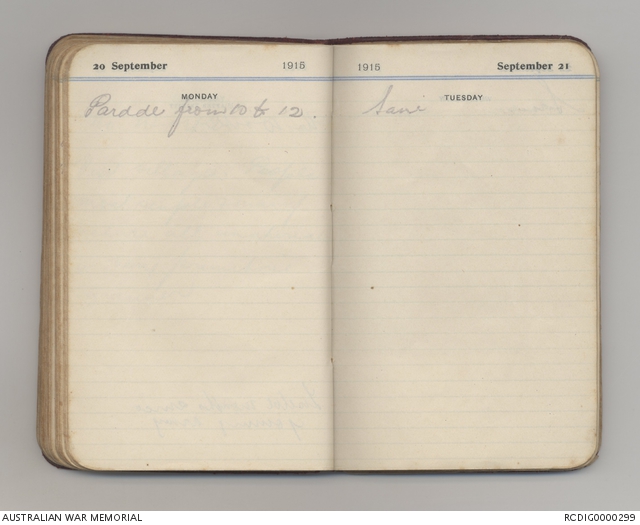 20 September 1915
MONDAY
Paradde from 10 to 12.
1915 September 21
TUESDAY
Same
AUSTRALIAN WAR MEMORIAL
RCDIG0000299